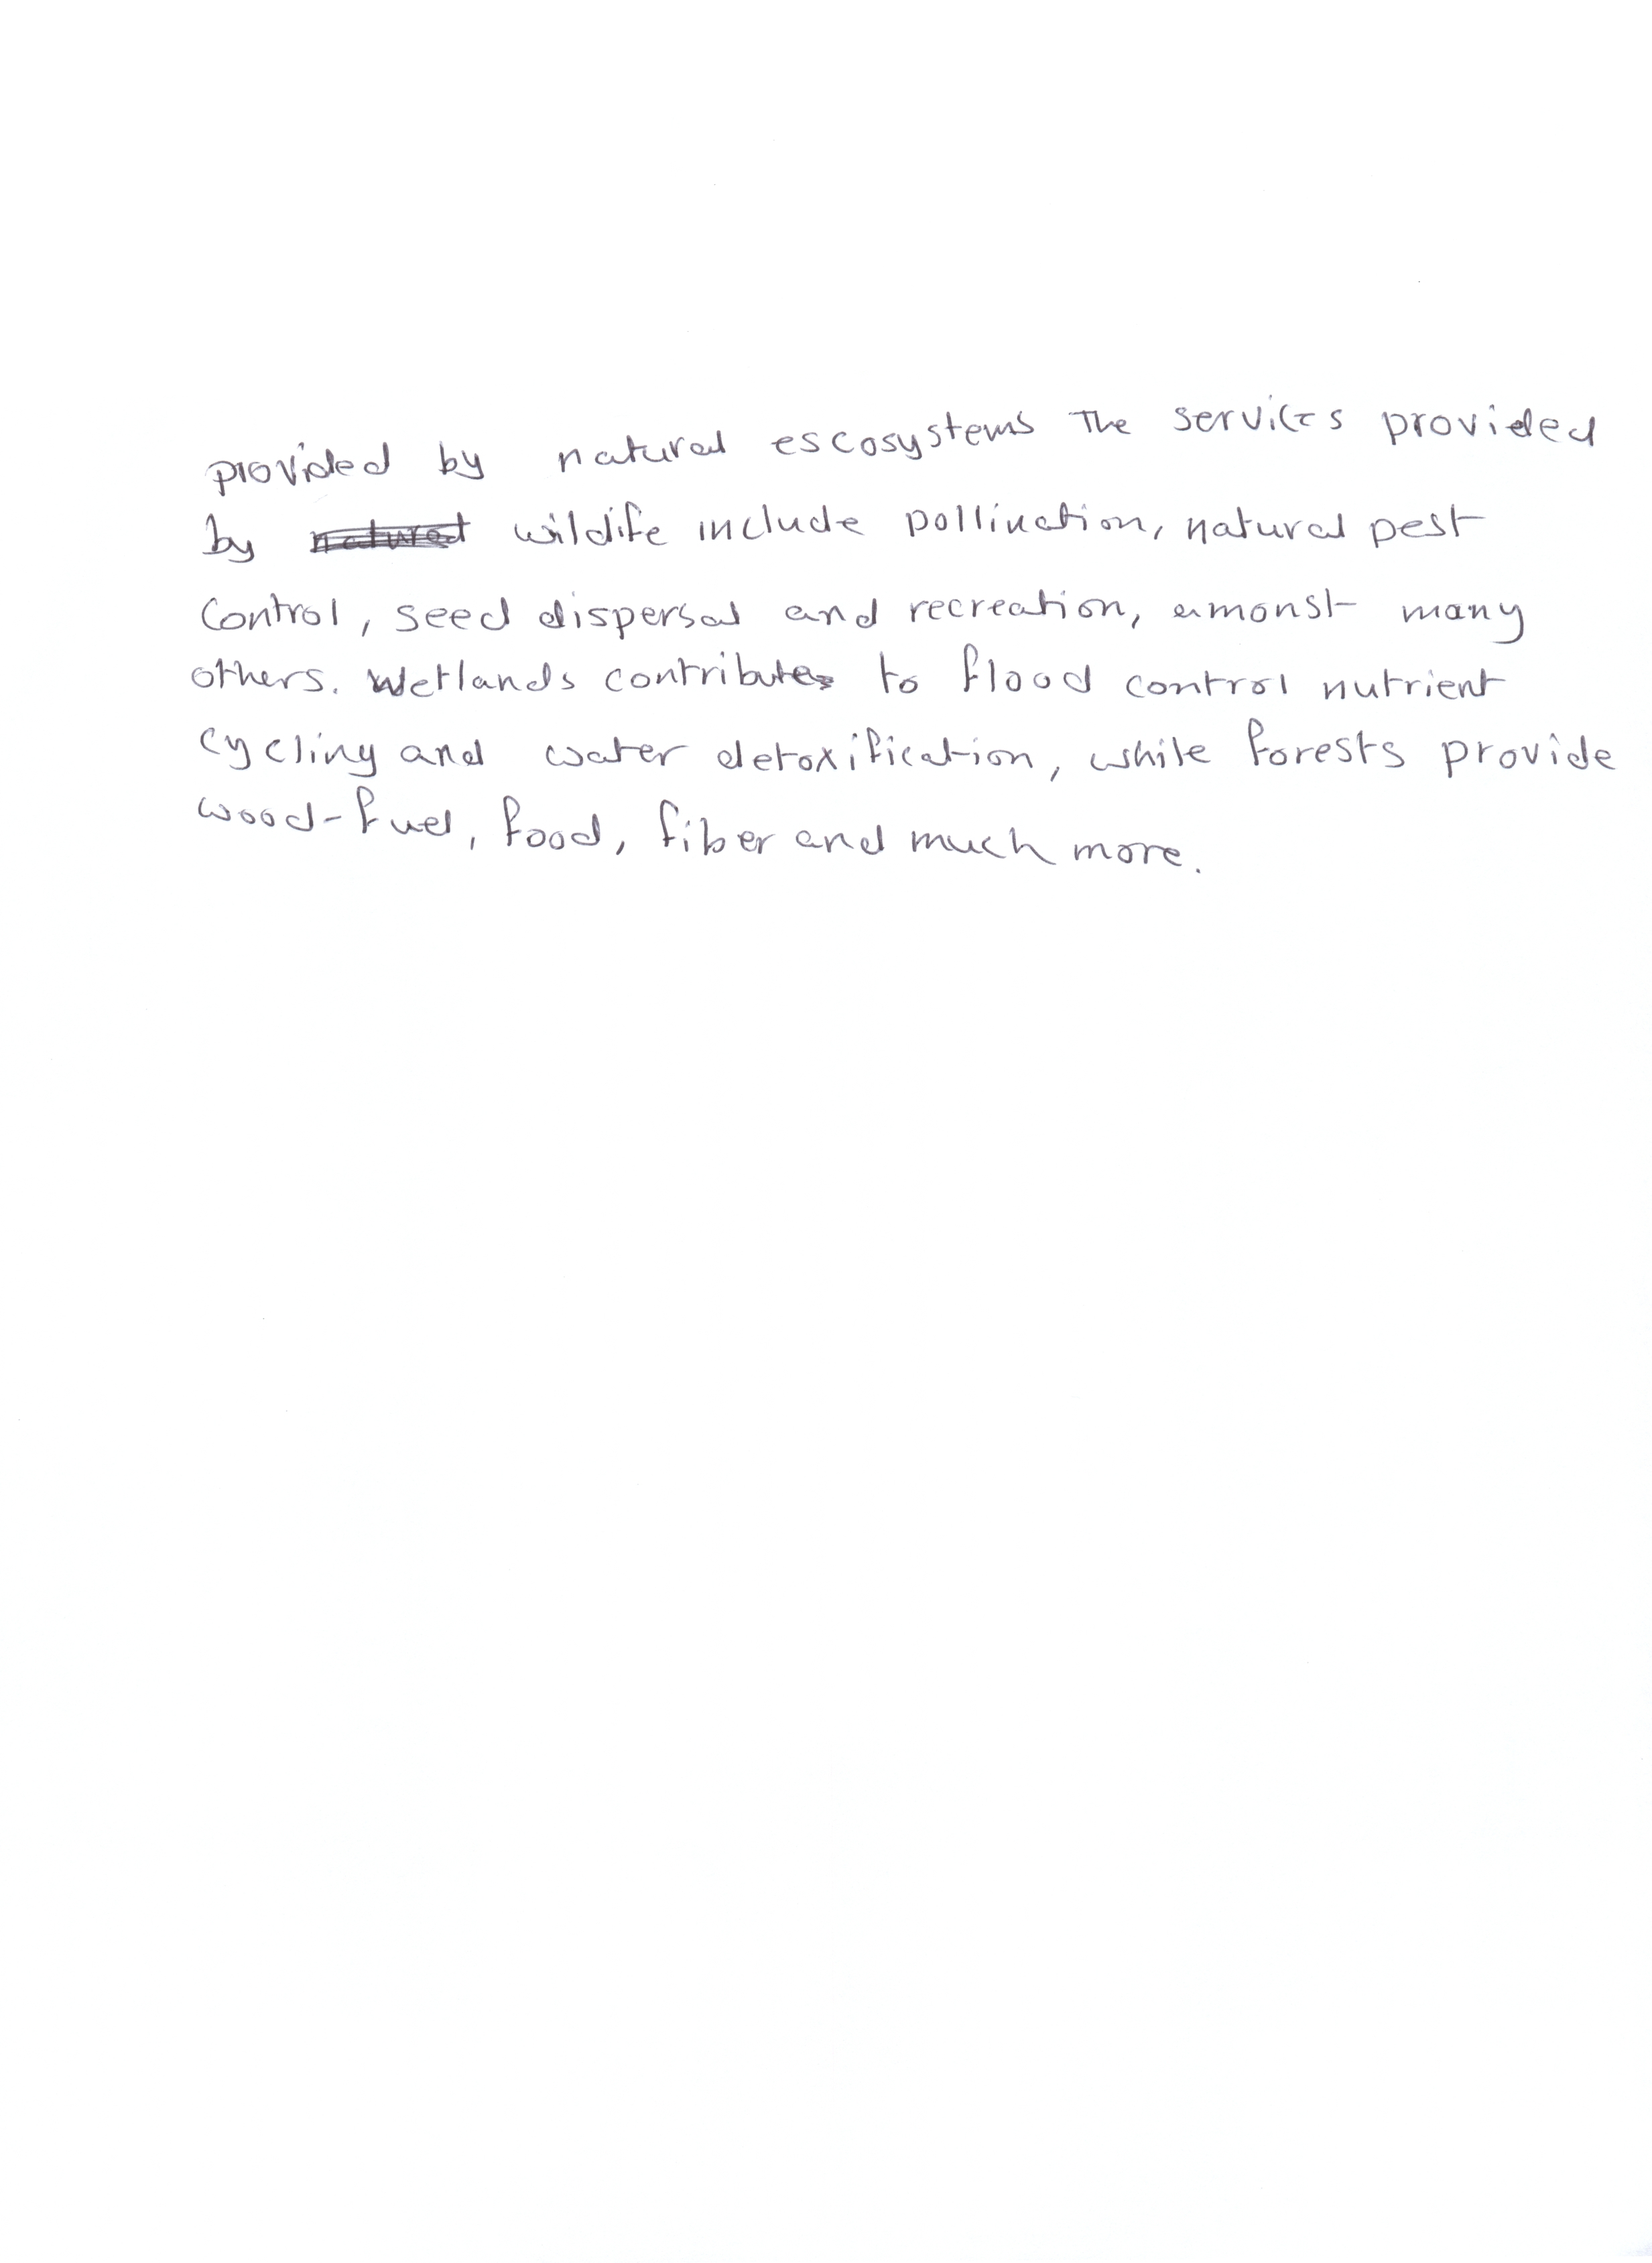 provided by natural escosystems The services provided
by natural wildife include pollination, natural pest
control, seed dispersal and recreation, amonst many
others. Wetlands contributes to flood control nutrient
cycling and water detoxification, while forests provide
wood-fuel, food, fiber and much more.